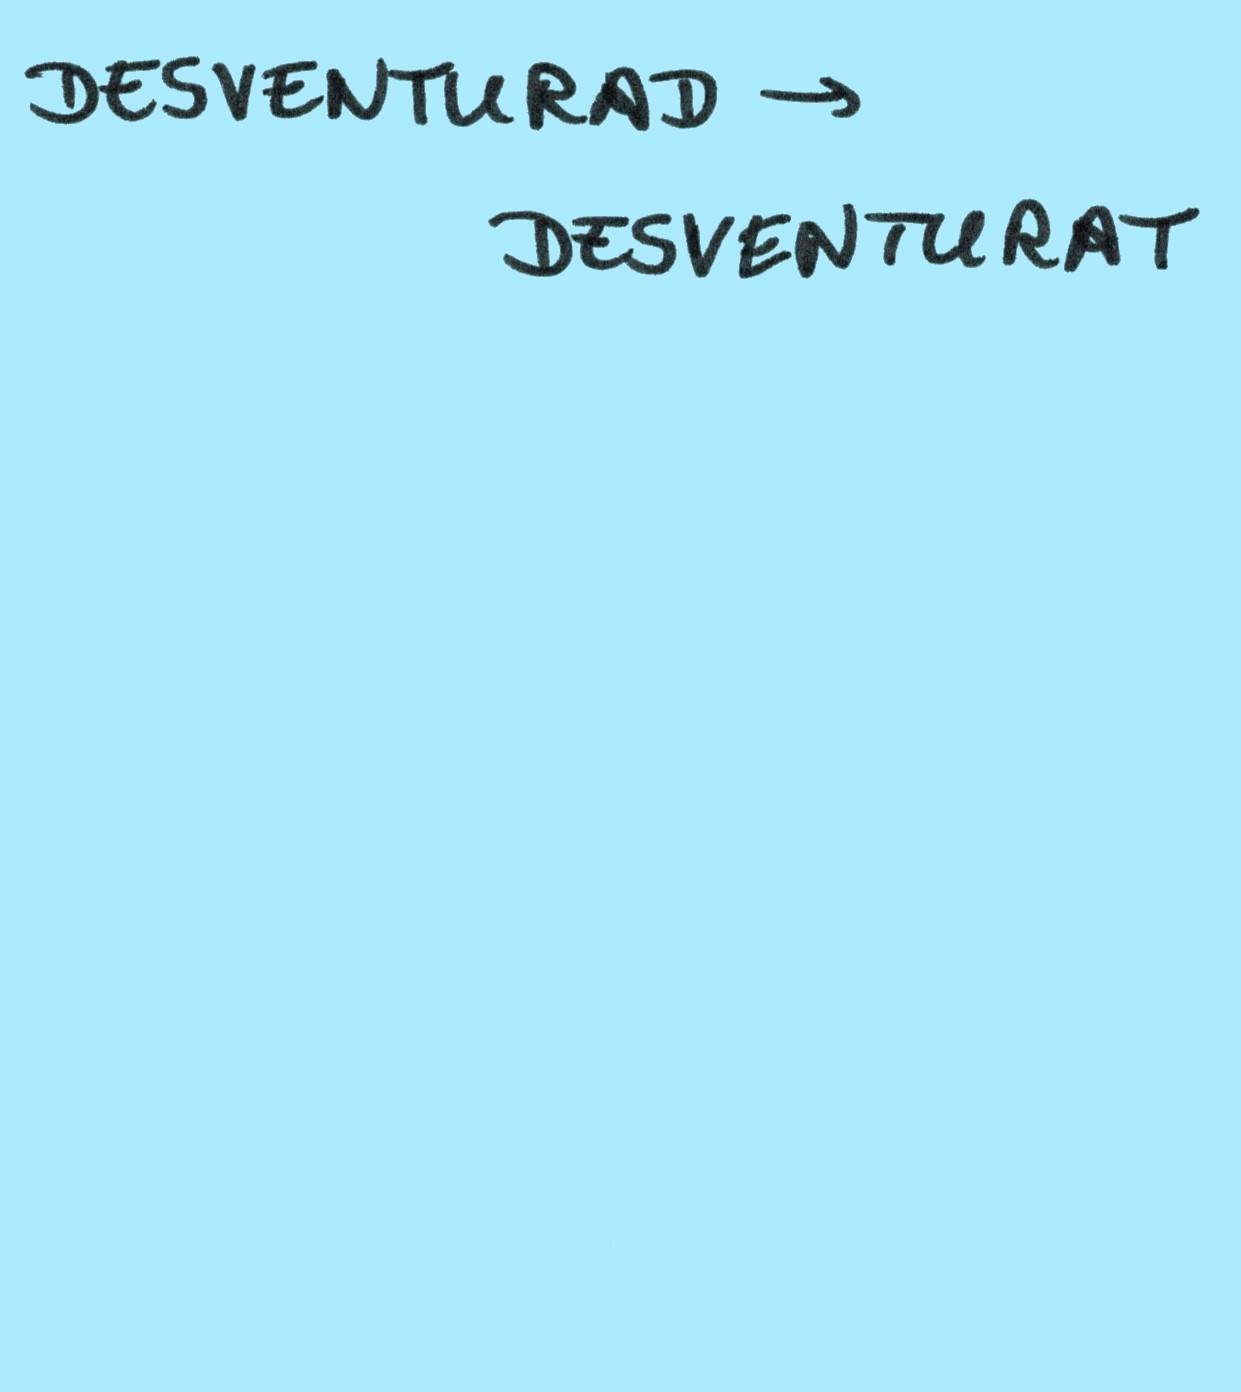 DESVENTURAD →
DESVENTURAT